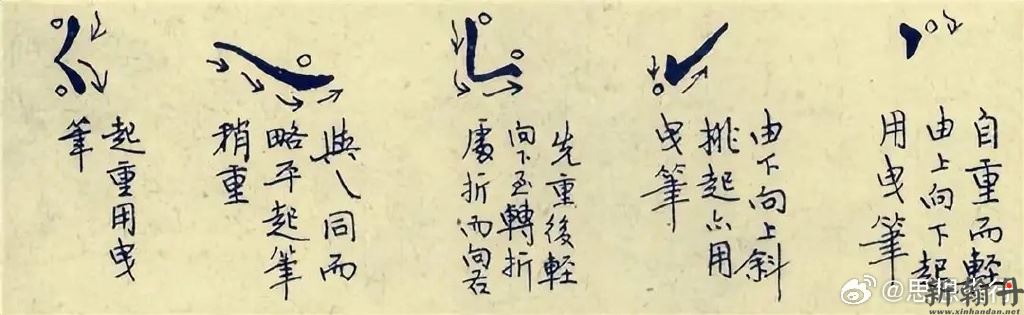 自重而軽
由上向下起
用曳筆
由下向上斜
挑起亦用
曳筆
先重後軽
向下至轉折
處折而向右
與乀同而
略平起筆
稍重
起重用曳
筆
www.xinhandan.net